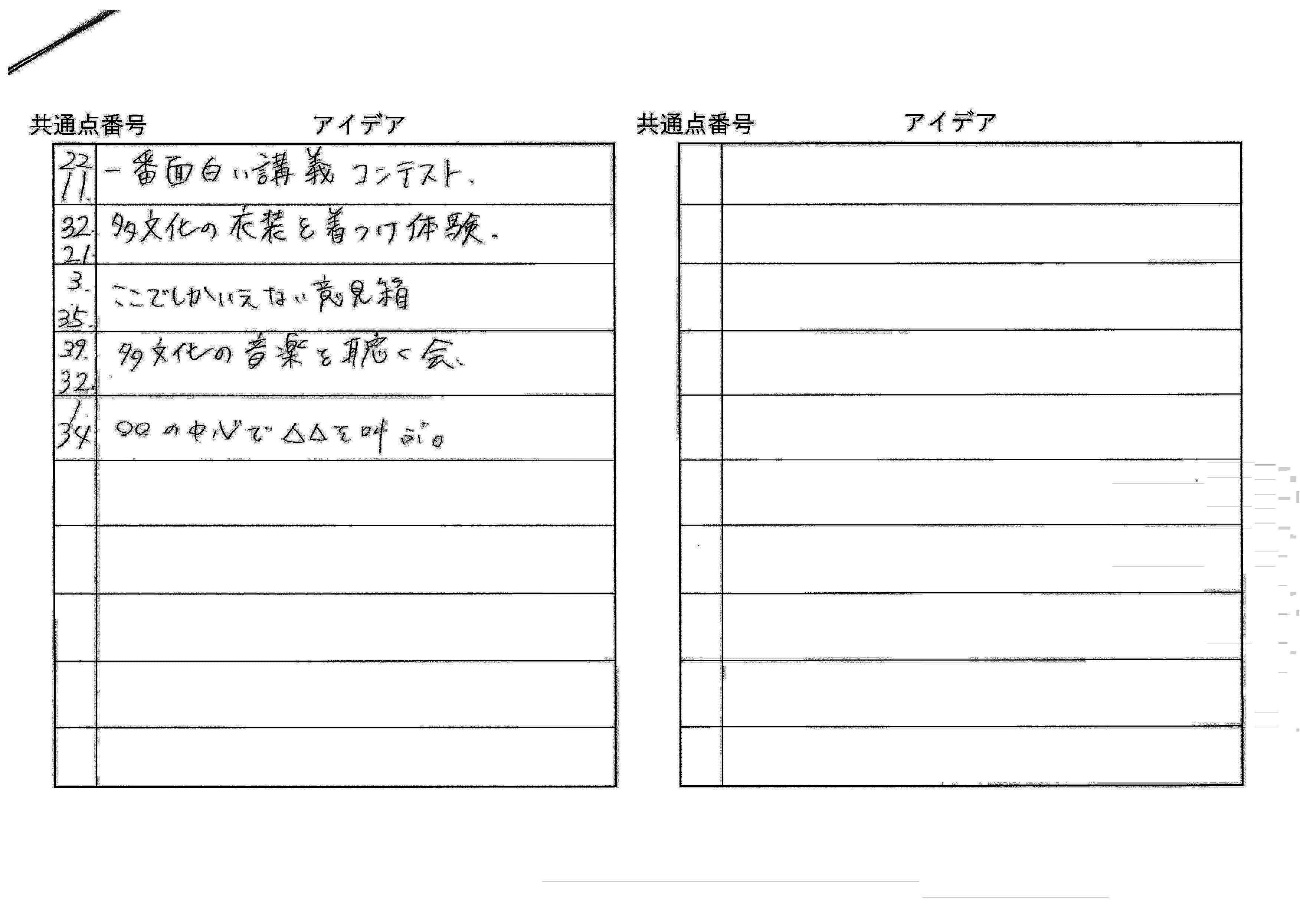 共通点番号 アイデア
22 11. 一番面白い講義コンテスト.
32. 21. 多文化の衣装を着つけ体験.
3. 35. ここでしかいえない意見箱
39. 32. 多文化の音楽を聴く会.
1. 34 〇〇の中心で△△を叫ぶ。
共通点番号 アイデア